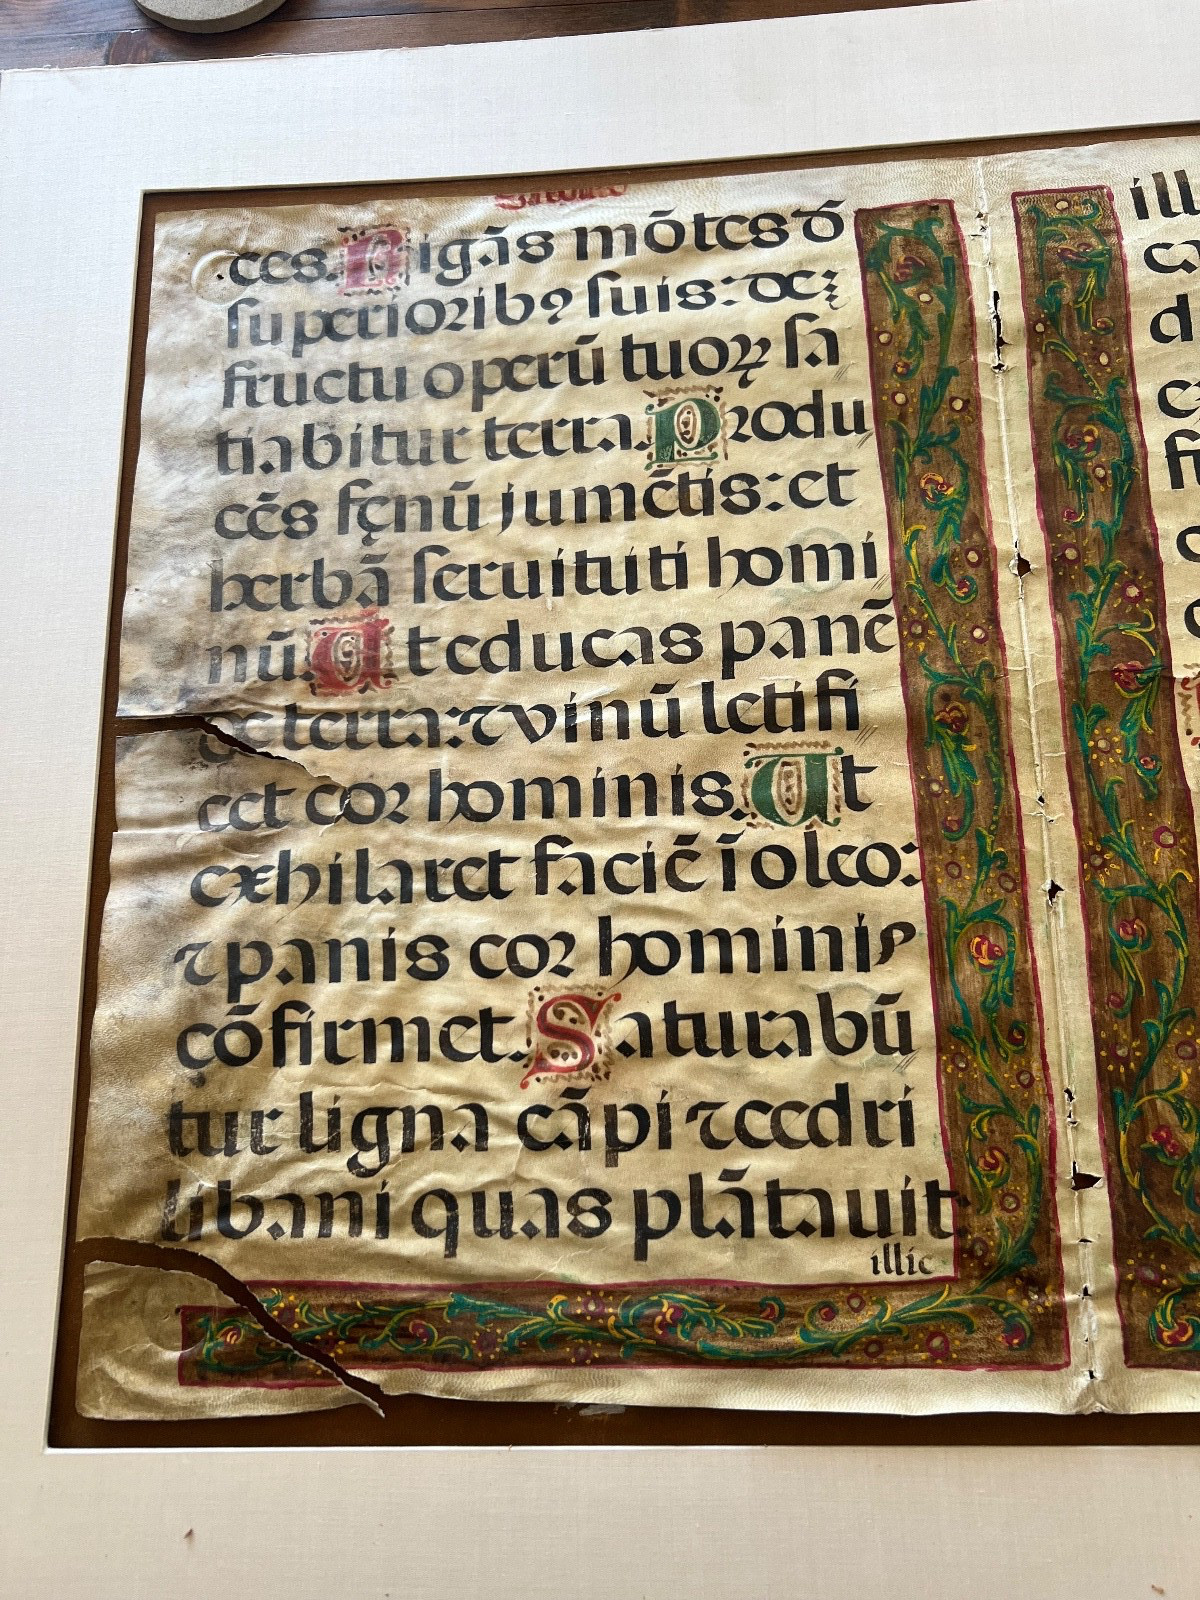 ces. Rigās mōtes d̄
ſuperiorib⁹ ſuis: de
fructu operū tuoꝝ ſa
tiabitur terra. Produ
cēs fęnū jumētis: et
herbā ſeruituti homi
nū. Ut educas panē
de terra: ⁊ vinū letifi
cet cor hominis. Ut
exhilaret faciē ī oleo:
⁊ panis cor hominis
cōfirmet. Saturabū
tur ligna cāpi ⁊ cedri
libani quas plātauit.
illic
ill